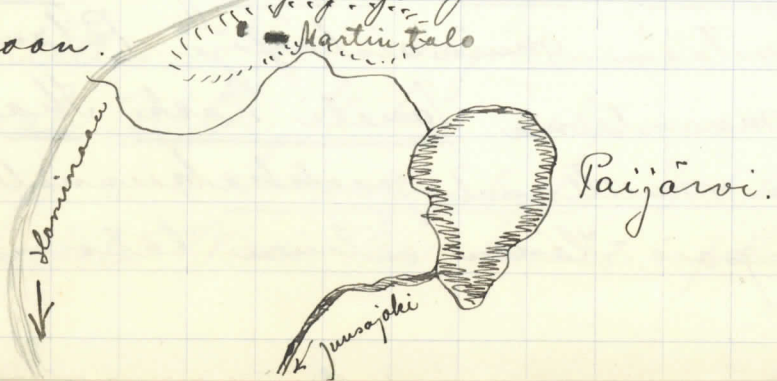 Martin talo
Haminaan
Paijärvi.
Juusojoki